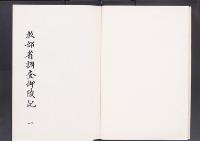 教部省調査御陵記 一